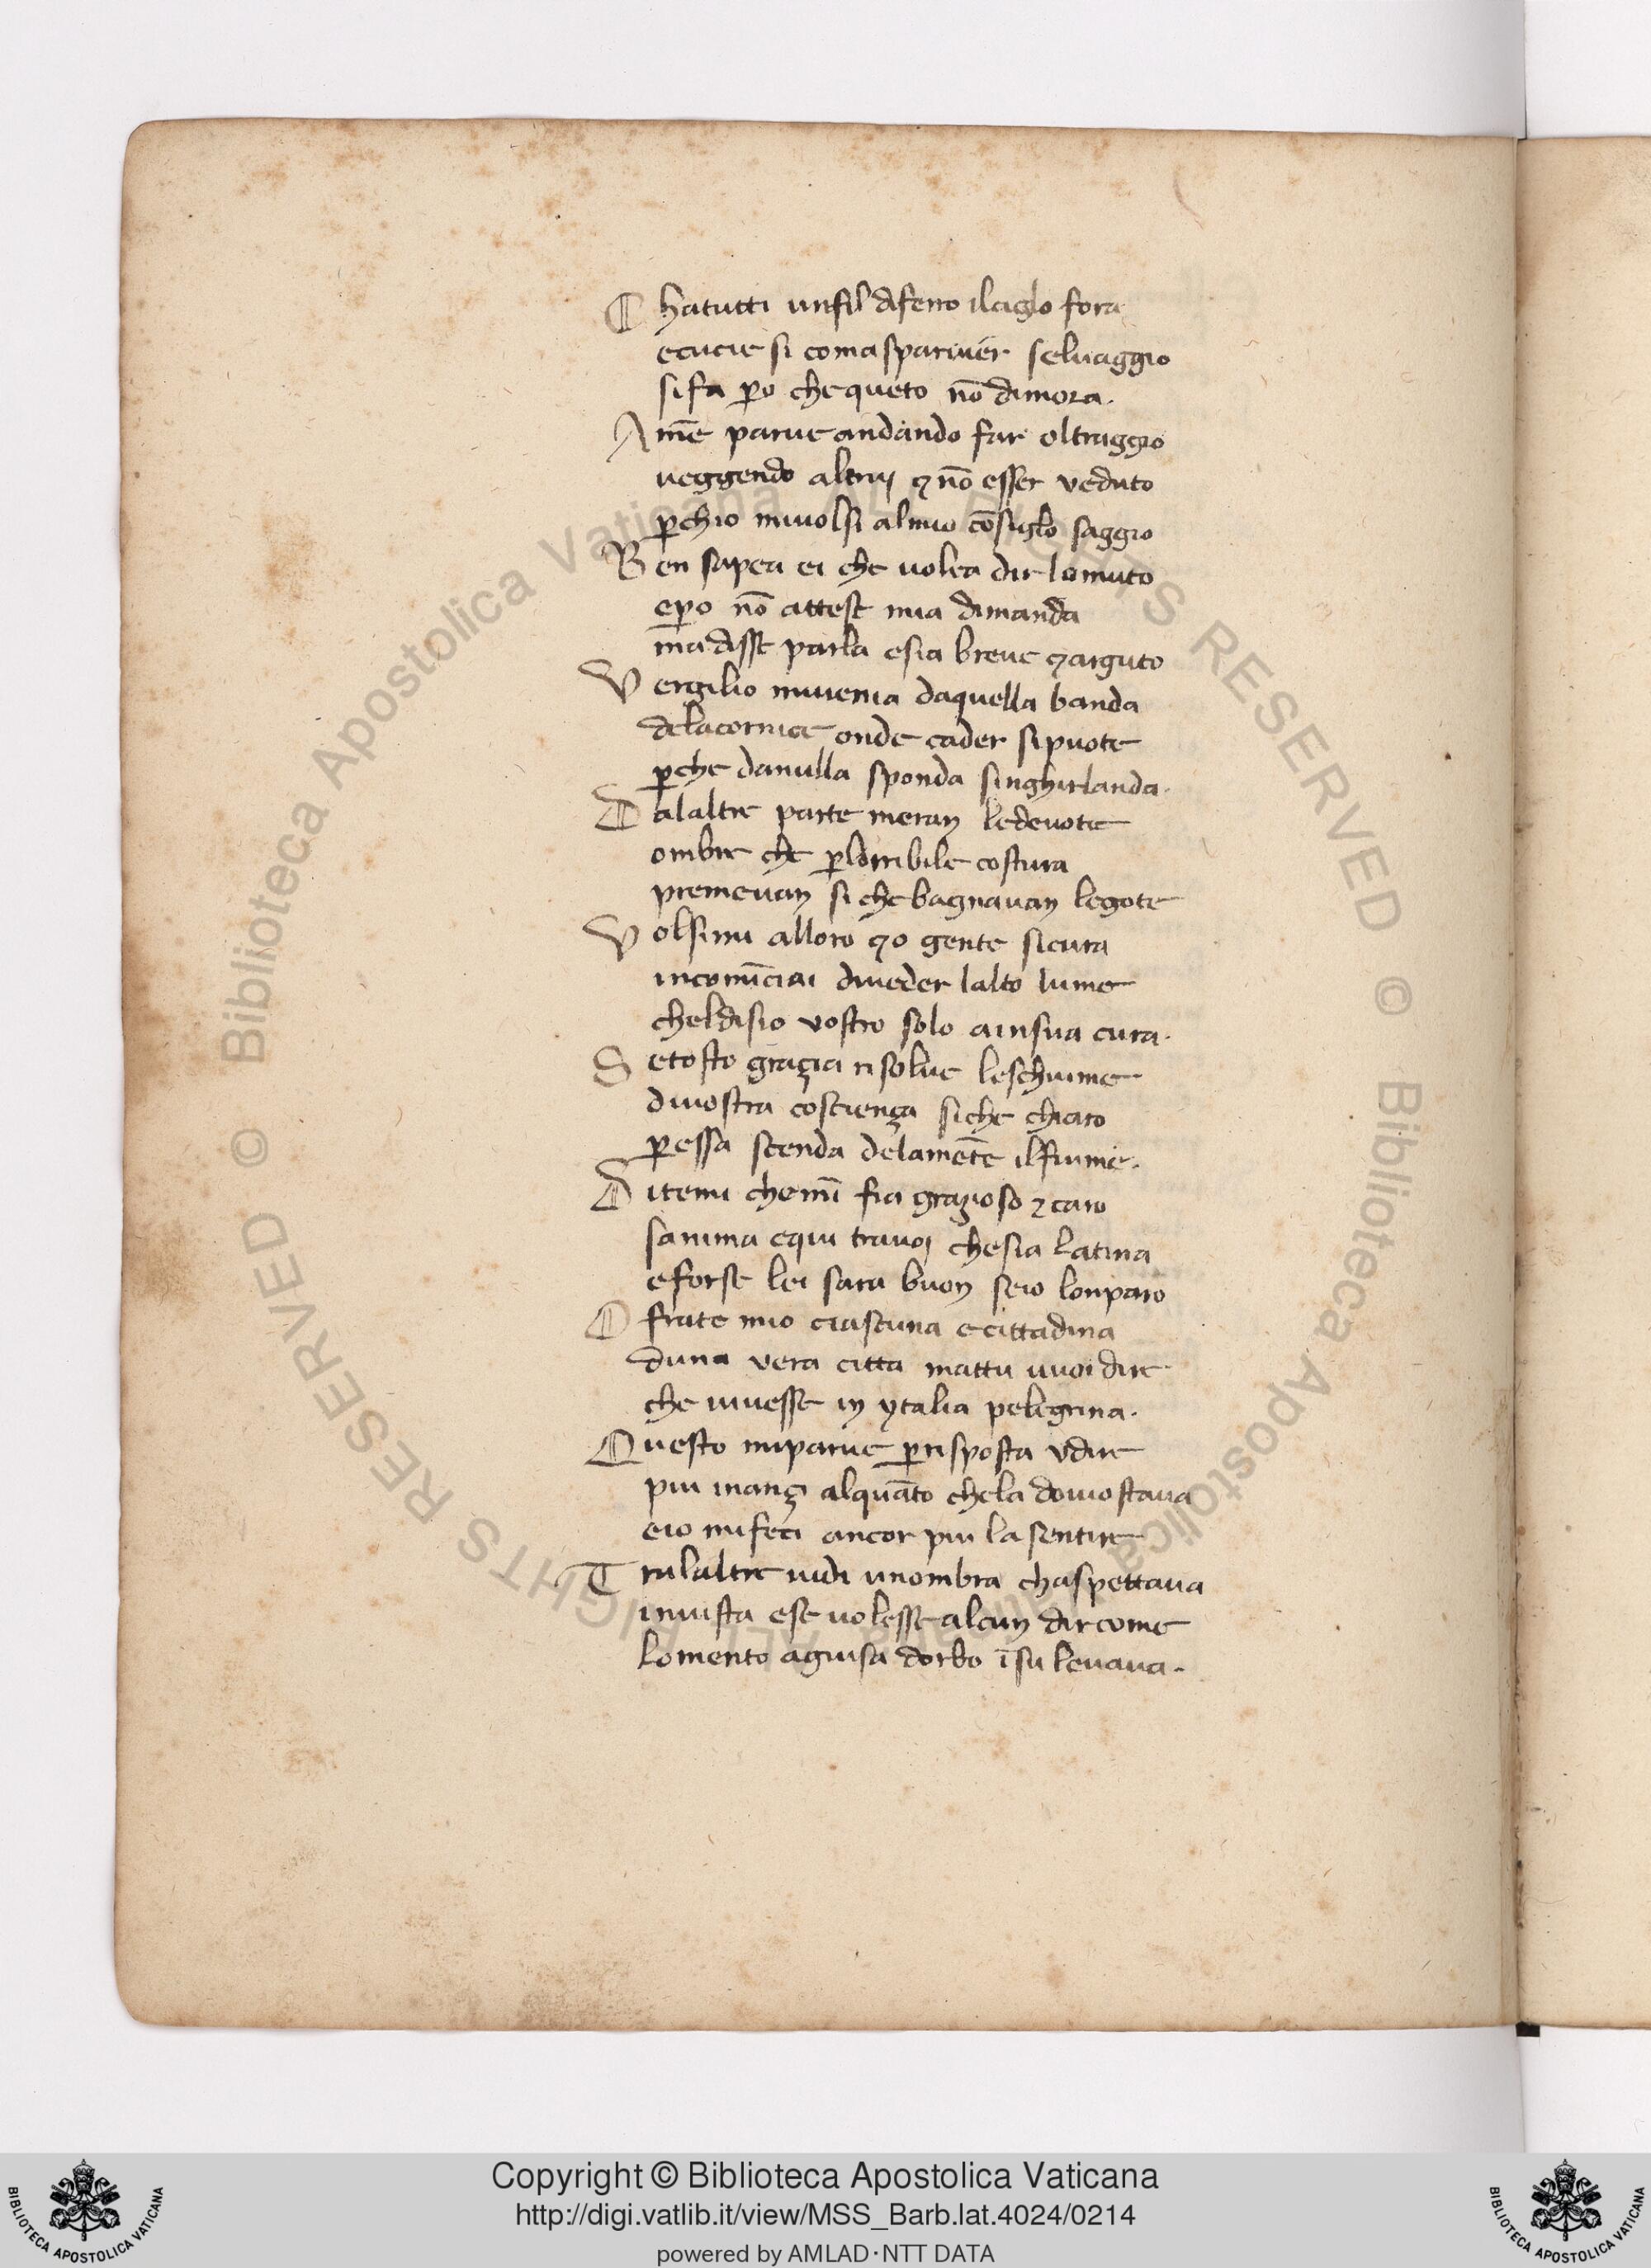 C hatutti unfil diferro ilciglo fora
ecucie si comasparuier seluaggio
sifa ꝑo chequeto nō dimora.
A mē parue andando far oltraggio
ueggendo altruj ⁊ nō esser veduto
ꝑchio miuolsi almio cōsiglo saggio
B en sapea ei che uolea dir lomuto
eꝑo nō attese mia dimanda
ma disse parla esia breue ⁊arguto
V ergilio miuenia daquella banda
delacornice onde cader sipuote
ꝑche danulla sponda singhirlanda.
D alaltre parte meran ledeuote
ombre che ꝑlorribile costura
premeuan si chebagnauan legote
V olsimi alloro ⁊o gente sicura
incomīciai diueder lalto lume
cheldisio vostro solo ainsua cura.
S etosto graçia risolue leschiume
diuostra cosciença siche chiaro
ꝑessa scenda delamēte ilfiume.
D itemi chemī fia grazioso ⁊caro
sanima equi trauoj chesia latina
eforse lei sara buon seio lonparo
O frate mio ciascuna ecittadina
duna vera citta mattu uuoidire
che uiuesse in ytalia pelegrina.
Q uesto miparue ꝑrisposta vdire
piu inançi alquāto chela douiostaua
eio mifeci ancor piu la sentire
T ralaltre uidi unombra chaspettaua
inuista ese uolesse alcun dircome
lomento aguisa dorbo īsu leuaua.
© Biblioteca Apostolica Vaticana ALL RIGHTS RESERVED © Biblioteca Apostolica Vaticana ALL RIGHTS RESERVED
Copyright © Biblioteca Apostolica Vaticana
http://digi.vatlib.it/view/MSS_Barb.lat.4024/0214
powered by AMLAD·NTT DATA
BIBLIOTECA APOSTOLICA VATICANA
BIBLIOTECA APOSTOLICA VATICANA